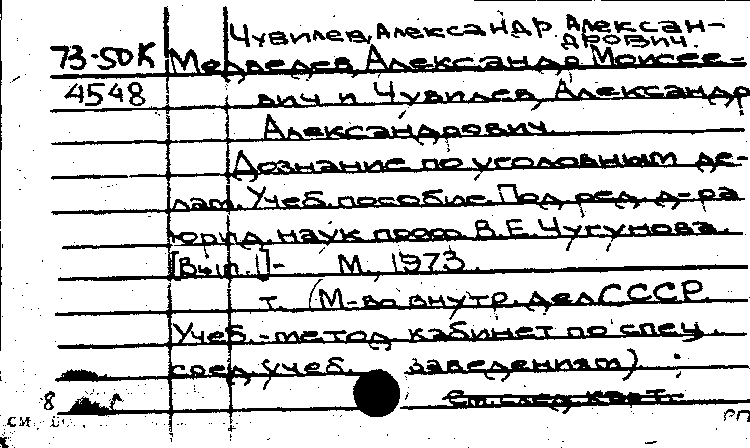 Чувилев, Александр Алексан-
дрович.
73-50К Медведев, Александр Моисее-
4548 вич и Чувилев, Александр
Александрович.
Дознание по уголовным де-
лам. Учеб. пособие. Под ред. д-ра
юрид. наук проф. В.Е. Чугунова.
[Вып. 1]- М., 1973.
т. (М-во внутр. дел СССР.
Учеб.-метод. кабинет по спец.
сред. учеб. заведениям) ;
8 см. след. карт.
см.